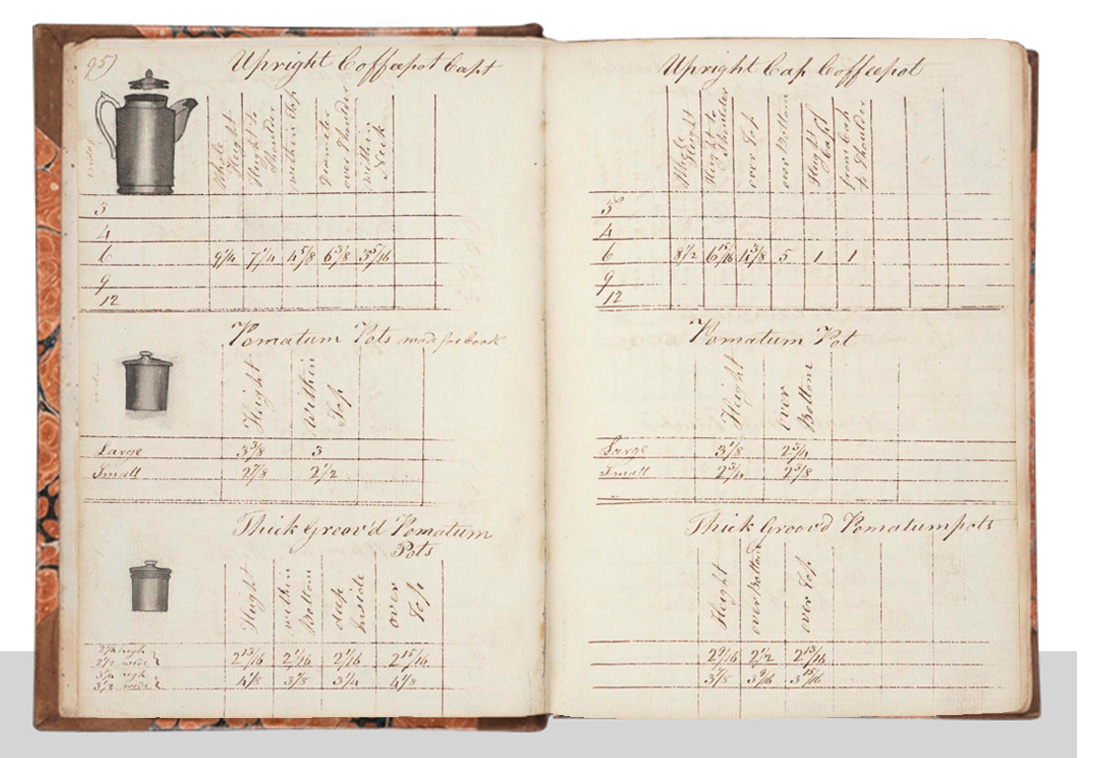 95)
Upright Coffeepot Cast
Whole Height
Height to Shoulder
within Top
Diameter over Shoulder
within Neck
3
4
6 9 1/4 7 1/4 4 5/8 6 3/8 3 5/16
9
12
Pomatum Pots made for book
Height
Within Top
Large 3 3/8 3
Small 2 7/8 2 1/2
Thick Groov'd Pomatum
Pots
Height
within Bottom
deep Inside
over Top
high 2 13/16 2 1/16 2 1/16 2 15/16
wide
high 4 1/8 3 1/8 3 1/4 4 1/8
wide
Upright Cap Coffeepot
Whole Height
Height to Shoulder
over Top
over Bottom
Height of Cap
from Cap to Shoulder
3
4
6 8 1/2 6 15/16 4 3/8 5 1 1
9
12
Pomatum Pot
Height
over Bottom
Large 3 1/8 2 3/4
Small 2 3/4 2 3/8
Thick Groov'd Pomatumpots
Height
over Bottom
over Top
2 9/16 2 1/2 2 13/16
3 7/8 3 9/16 3 15/16